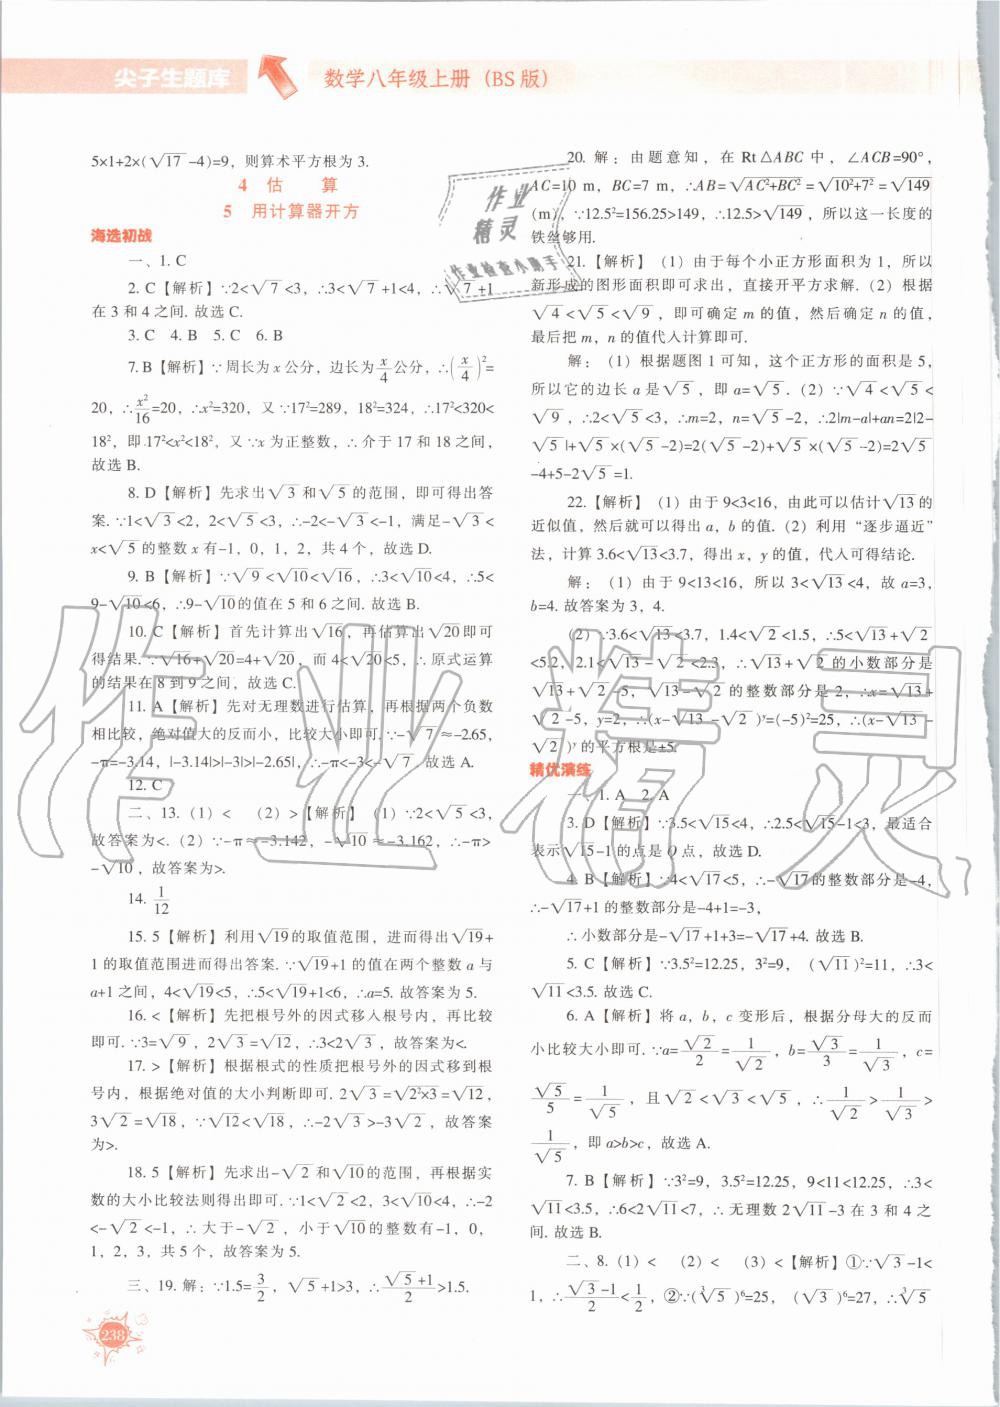 尖子生题库
数学八年级上册（BS版）
5×1+2×(√17-4)=9，则算术平方根为3.
4 估 算
5 用计算器开方
海选初战
一、1. C
2. C【解析】∵2<√7<3，∴3<√7+1<4，∴√7+1
在3和4之间. 故选C.
3. C 4. B 5. C 6. B
7. B【解析】∵周长为x公分，边长为x/4公分，∴(x/4)²=
20，∴x²/16=20，∴x²=320，又∵17²=289，18²=324，∴17²<320<
18²，即17²<x²<18²，又∵x为正整数，∴介于17和18之间，
故选B.
8. D【解析】先求出√3和√5的范围，即可得出答
案. ∵1<√3<2，2<√5<3，∴-2<-√3<-1，满足-√3<
x<√5的整数x有-1，0，1，2，共4个，故选D.
9. B【解析】∵√9<√10<√16，∴3<√10<4，∴5<
9-√10<6，∴9-√10的值在5和6之间. 故选B.
10. C【解析】首先计算出√16，再估算出√20即可
得结果. ∵√16+√20=4+√20，而4<√20<5，∴原式运算
的结果在8到9之间，故选C.
11. A【解析】先对无理数进行估算，再根据两个负数
相比较，绝对值大的反而小，比较大小即可. ∵-√7≈-2.65，
-π=-3.14，|-3.14|>|-3|>|-2.65|，∴-π<-3<-√7. 故选A.
12. C
二、13.（1）< （2）>【解析】（1）∵2<√5<3，
故答案为<.（2）∵-π≈-3.142，-√10≈-3.162，∴-π>
-√10，故答案为>.
14. 1/12
15. 5【解析】利用√19的取值范围，进而得出√19+
1的取值范围进而得出答案. ∵√19+1的值在两个整数a与
a+1之间，4<√19<5，∴5<√19+1<6，∴a=5. 故答案为5.
16. <【解析】先把根号外的因式移入根号内，再比较
即可. ∵3=√9，2√3=√12，∴3<2√3，故答案为<.
17. >【解析】根据根式的性质把根号外的因式移到根
号内，根据绝对值的大小判断即可. 2√3=√2²×3=√12，
3√2=√18，∵√12<√18，∴-2√3>-3√2，故答案
为>.
18. 5【解析】先求出-√2和√10的范围，再根据实
数的大小比较法则得出即可. ∵1<√2<2，3<√10<4，∴-2
<-√2<-1，∴大于-√2，小于√10的整数有-1，0，
1，2，3，共5个，故答案为5.
三、19. 解：∵1.5=3/2，√5+1>3，∴(√5+1)/2>1.5.
238
20. 解：由题意知，在Rt△ABC中，∠ACB=90°，
AC=10 m，BC=7 m，∴AB=√AC²+BC²=√10²+7²=√149
(m)，∵12.5²=156.25>149，∴12.5>√149，所以这一长度的
铁丝够用.
21.【解析】（1）由于每个小正方形面积为1，所以
新形成的图形面积即可求出，直接开平方求解.（2）根据
√4<√5<√9，即可确定m的值，然后确定n的值，
最后把m，n的值代入计算即可.
解：（1）根据题图1可知，这个正方形的面积是5，
所以它的边长a是√5，即a=√5.（2）∵√4<√5<
√9，∴2<√5<3，∴m=2，n=√5-2，∴2|m-a|+an=2|2-
√5|+√5×(√5-2)=2(√5-2)+√5×(√5-2)=2√5
-4+5-2√5=1.
22.【解析】（1）由于9<3<16，由此可以估计√13的
近似值，然后就可以得出a，b的值.（2）利用“逐步逼近”
法，计算3.6<√13<3.7，得出x，y的值，代人可得结论.
解：（1）由于9<13<16，所以3<√13<4，故a=3，
b=4. 故答案为3，4.
（2）∵3.6<√13<3.7，1.4<√2<1.5，∴5<√13+√2
<5.2，2.1<√13-√2<2.3，∴√13+√2的小数部分是
√13+√2-5，√13-√2的整数部分是2，∴x=√13+
√2-5，y=2，∴(x-√13-√2)ʸ=(-5)²=25，∴(x-√13-
√2)ʸ的平方根是±5.
精优演练
一、1. A 2. A
3. D【解析】∵3.5<√15<4，∴2.5<√15-1<3，最适合
表示√15-1的点是Q点，故选D.
4. B【解析】∵4<√17<5，∴-√17的整数部分是-4，
∴-√17+1的整数部分是-4+1=-3，
∴小数部分是-√17+1+3=-√17+4. 故选B.
5. C【解析】∵3.5²=12.25，3²=9，(√11)²=11，∴3<
√11<3.5. 故选C.
6. A【解析】将a，b，c变形后，根据分母大的反而
小比较大小即可. ∵a=√2/2=1/√2，b=√3/3=1/√3，c=
√5/5=1/√5，且√2<√3<√5，∴1/√2>1/√3>
1/√5，即a>b>c，故选A.
7. B【解析】∵3²=9，3.5²=12.25，9<11<12.25，∴3<
√11<3.5，∴6<2√11<7，∴无理数2√11-3在3和4之
间. 故选B.
二、8.（1）< （2）< （3）<【解析】①∵√3-1<
1，∴(√3-1)/2<1/2，②∵(∛5)⁶=25，(√3)⁶=27，∴∛5
作业
精灵
作业检查小助手
作业精灵